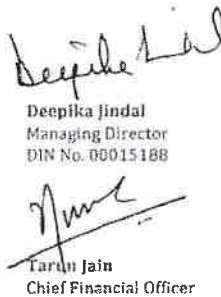 Deepika Jindal
Deepika Jindal
Managing Director
DIN No. 00015188
Tarun Jain
Chief Financial Officer